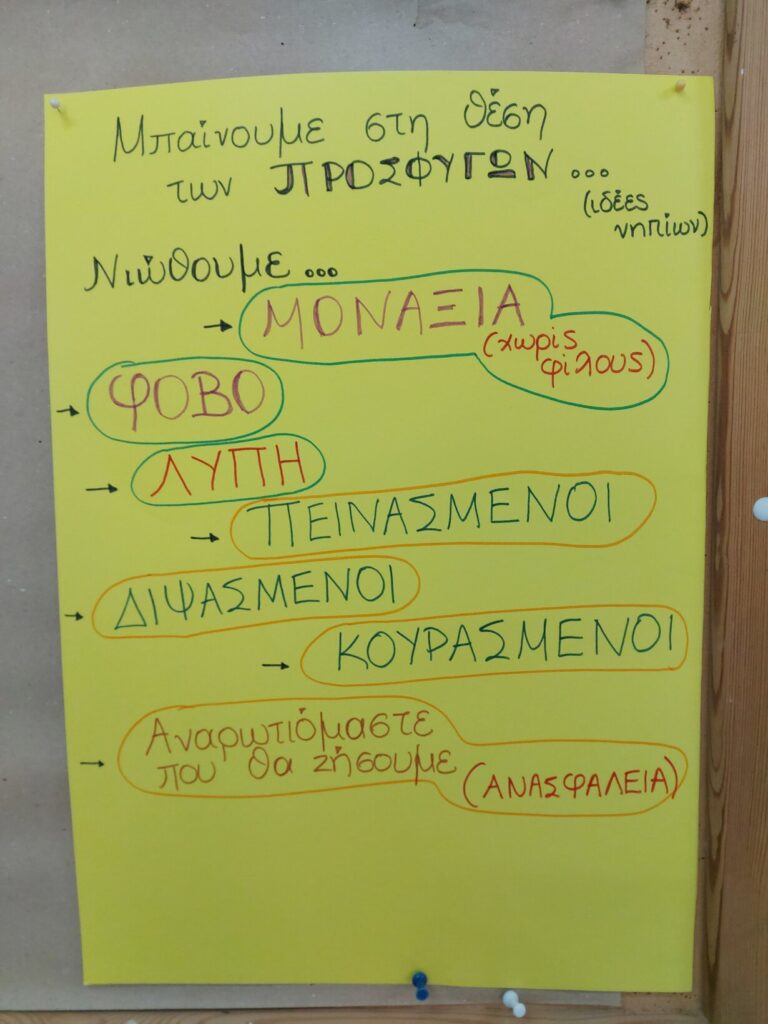 Μπαίνουμε στη θέση
των ΠΡΟΣΦΥΓΩΝ...
(ιδέες
νηπίων)
Νιώθουμε...
→ ΜΟΝΑΞΙΑ
(χωρίς
φίλους)
→ ΦΟΒΟ
→ ΛΥΠΗ
→ ΠΕΙΝΑΣΜΕΝΟΙ
→ ΔΙΨΑΣΜΕΝΟΙ
→ ΚΟΥΡΑΣΜΕΝΟΙ
→ Αναρωτιόμαστε
που θα ζήσουμε (ΑΝΑΣΦΑΛΕΙΑ)